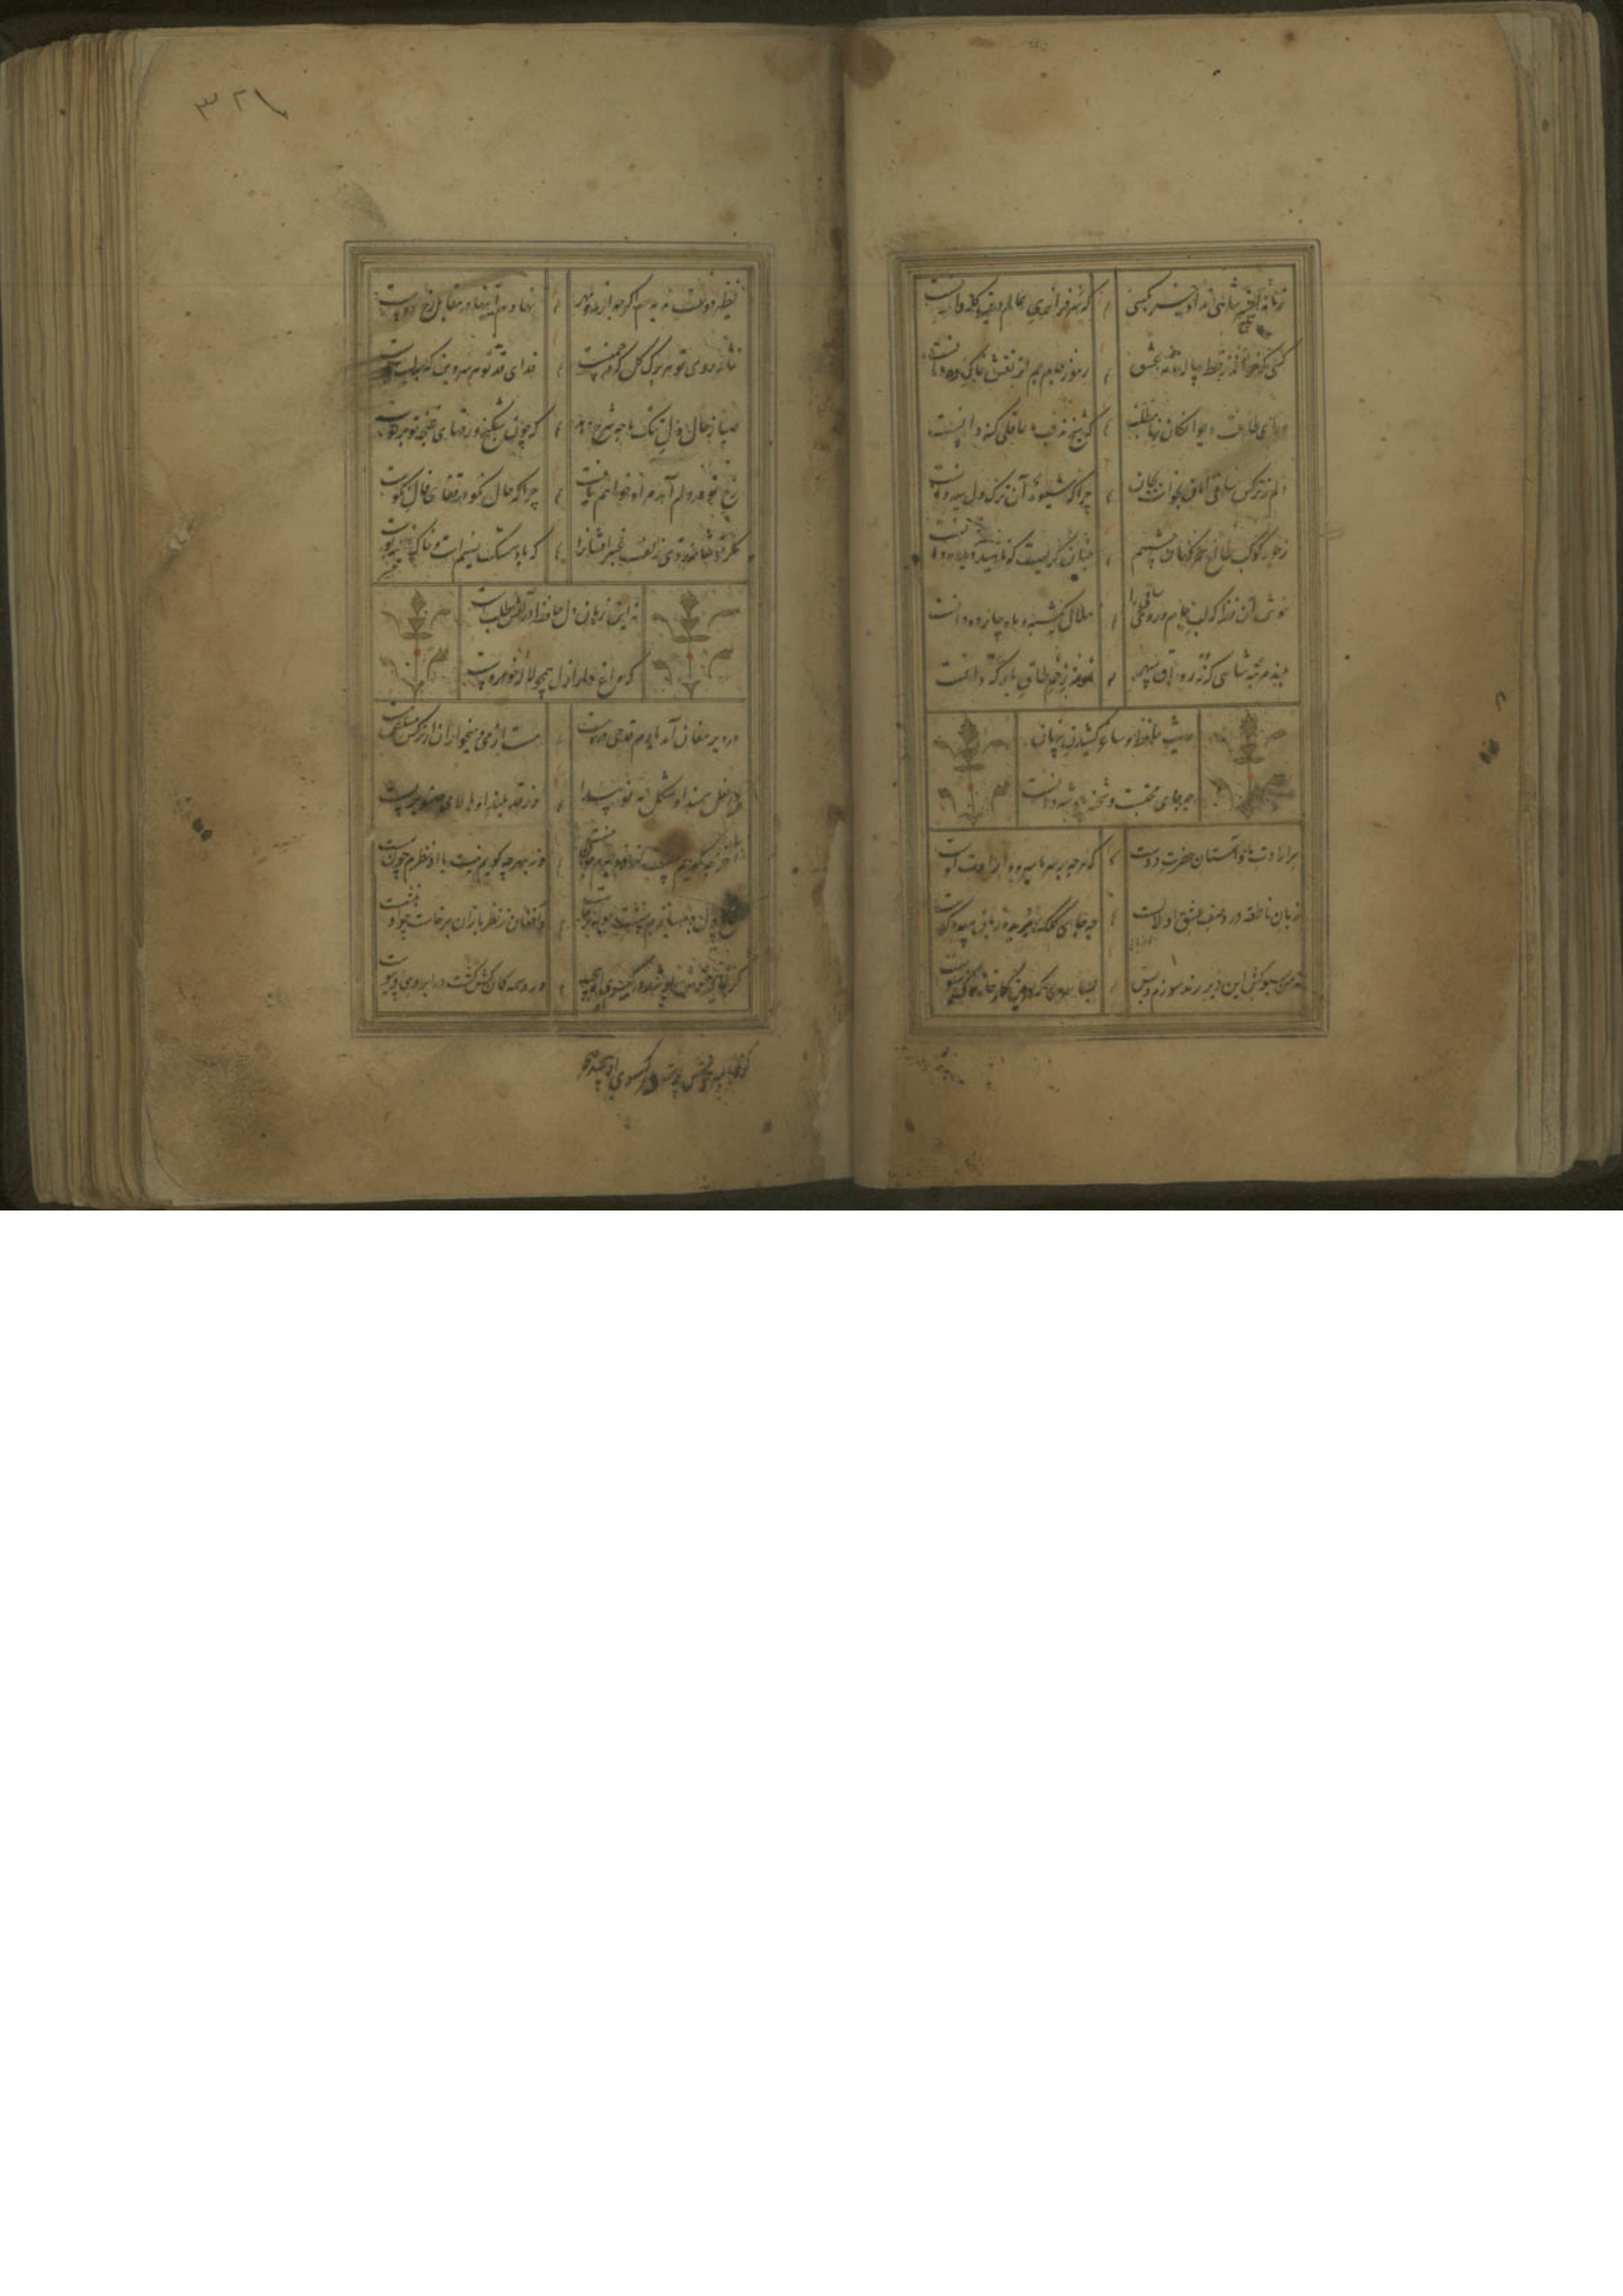 زمانه افسر رندی نداد جز بکسی
که سرفرازی عالم درین کله دانست
هر آنکه راز دو عالم ز خط ساغر خواند
رموز جام جم از نقش خاک ره دانست
ورای طاعت دیوانگان ز ما مطلب
که شیخ مذهب ما عاقلی گنه دانست
دلم ز نرگس ساقی امان نخواست بجان
چرا که شیوه آن ترک دل سیه دانست
ز جور کوکب طالع سحرگهان چشمم
چنان گریست که ناهید دید و مه دانست
خوش آن نظر که لب جام و روی ساقی را
هلال یکشبه و ماه چارده دانست
بلند مرتبه شاهی که نه رواق سپهر
نمونه ز خم طاق بارگه دانست
حدیث حافظ و ساغر کشیدن پنهان
چه جای محتسب و شحنه پادشه دانست
سر ارادت ما و آستان حضرت دوست
که هرچه بر سر ما میرود ارادت اوست
زبان ناطقه در وصف عشق او لالست
چه جای کلک بریده زبان بیهده گوست
نه من سبوکش این دیر رندسوزم و بس
بسا سرا که درین کارخانه خاک سبوست
نظیر دوست ندیدم اگرچه از مه و مهر
نهادم آینها در مقابل رخ دوست
نثار روی تو هر برگ گل که در چمنست
فدای قد تو هر سروبن که بر لب جوست
صبا ز حال دل تنگ ما چه شرح دهد
که چون شکنج ورقهای غنچه تو بر توست
رخ تو در دلم آمد مراد خواهم یافت
چرا که حال نکو در قفای فال نکوست
مگر تو شانه زدی زلف عنبرافشان را
که باد مشک نسیم است و خاک عنبربوست
نه این زمان دل حافظ در آتش طلب است
که داغ‌دار ازل همچو لاله خودروست
در دیر مغان آمد یارم قدحی در دست
مست از می و میخواران از نرگس مستش مست
در نعل سمند او شکل مه نو پیدا
وز قد بلند او بالای صنوبر پست
آخر بچه گویم هست از خود خبرم چون نیست
وز بهر چه گویم نیست با او نظرم چون هست
شمع دل دمسازم بنشست چو او برخاست
و افغان ز نظربازان برخاست چو او بنشست
گر غالیه خوش بو شد در گیسوی او پیچید
ور وسمه کمانکش گشت در ابروی او پیوست
گر غالیه خوش بو شد در گیسوی او پیچید
۳۲۱